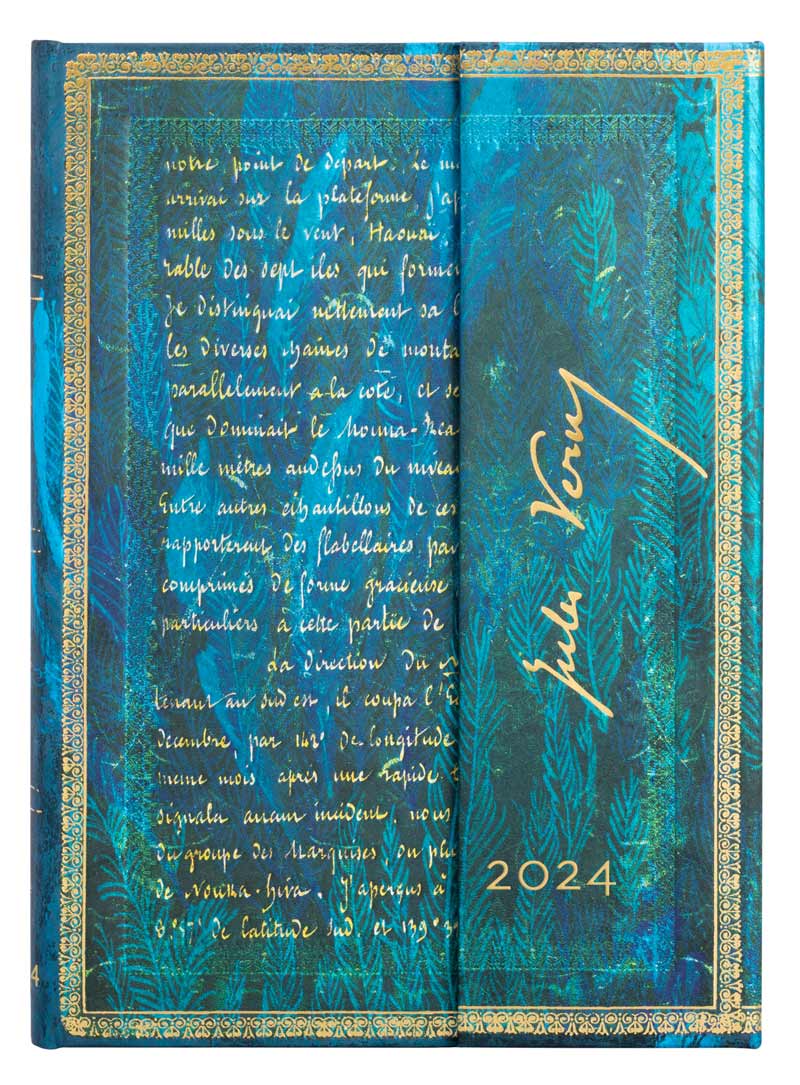 notre point de départ. Le m
arrivai sur la plateforme, j'ap
milles sous le vent, Haouai,
rable des sept iles qui forme
Je distinguai nettement sa l
les diverses chaines de monta
parallelement a la cote, et se
que dominait le Mouna-Rea
mille mètres audessus du nivea
Entre autres échantillons de ces
rapporterent des flabellaires pav
comprimés de forme gracieuse
particuliers à cette partie de
La direction du N
tenant au sud est, il coupa l'E
décembre, par 142° de longitude
meme mois après une rapide t
signala aucun incident, nous
du groupe des Marquises, ou plu
de Nouka-hiva. J'aperçus à
8.°57' de latitude sud. et 139°3
Jules Verne
2024
4